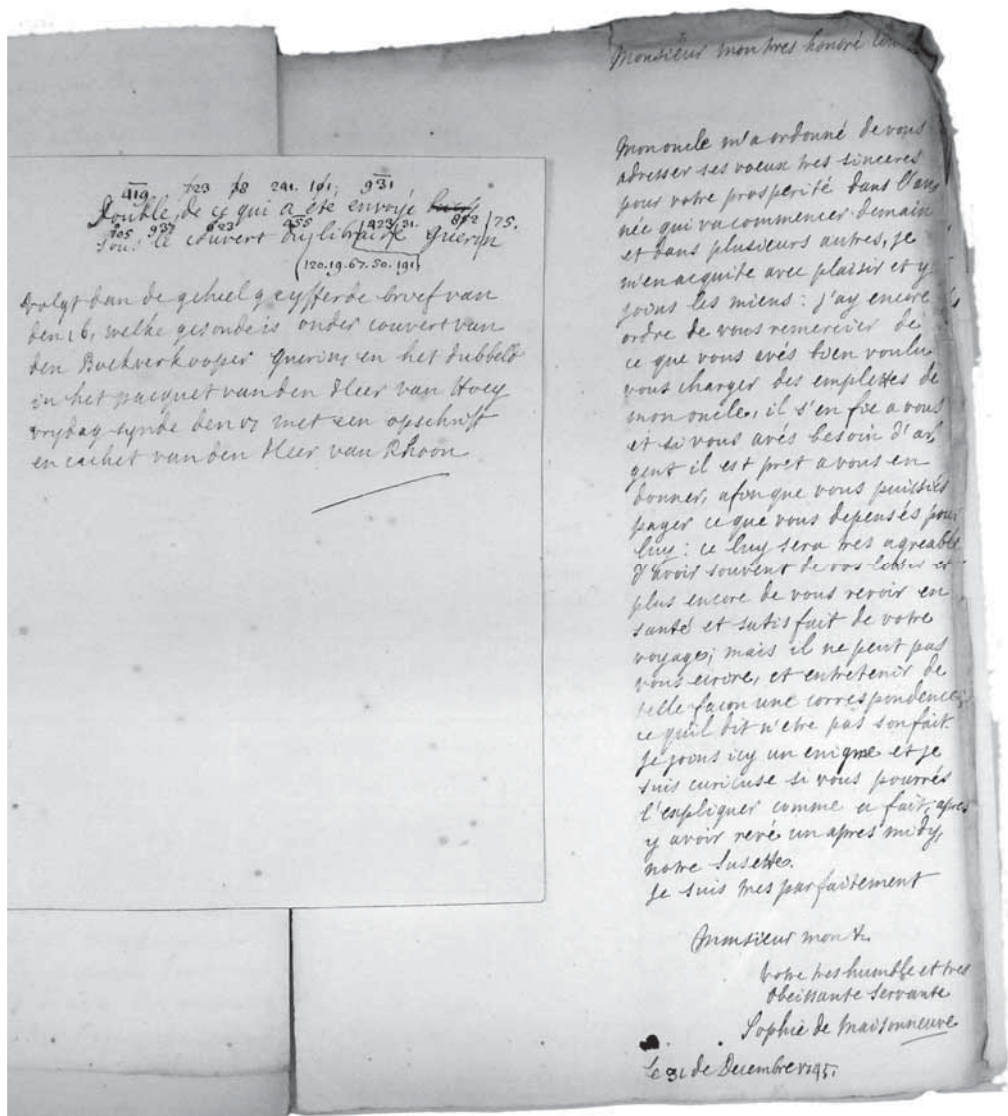 419 723 98 241. 101, 931
Double, de ce qui a été envoyé
705 937 623 455 423 31. 802 75.
sous le couvert du libraire Guerin
120.19.67.50.191
Volgt dan de geheel gecyfferde brief van
den 16, welke gesonden is onder couvert van
den Boekverkooper Guerin, en het dubbeld
in het pacquet van den Heer van Hoey
vrydag synde den 17 met een opschrift
en cachet van den Heer van Rhoon
Monsieur mon tres honoré
Mon oncle m'a ordonné de vous
adresser ses voeux tres sinceres
pour votre prosperité dans l'an
née qui va commencer demain
et dans plusieurs autres, je
m'en acquite avec plaisir et y
joins les miens: j'ay encore
ordre de vous remercier de
ce que vous avés bien voulu
vous charger des emplettes de
mon oncle, il s'en fie a vous
et si vous avés besoin d'ar
gent il est pret a vous en
donner, afin que vous puissiés
payer ce que vous depensés pour
luy: ce luy sera tres agreable
d'avoir souvent de vos lettres et
plus encore de vous revoir en
santé et satisfait de votre
voyage; mais il ne peut pas
vous ecrire, et entretenir de
telle facon une correspondence,
ce qu'il dit n'etre pas son fait.
Je joins icy un enigme et je
suis curieuse si vous pourrés
l'expliquer comme a fait, apres
y avoir revé un apres midy,
notre Susette.
Je suis tres parfaitement
Monsieur mon &.
Votre tres humble et tres
obeissante Servante
Sophie de Maisonneuve
Le 31 de Decembre 1745.